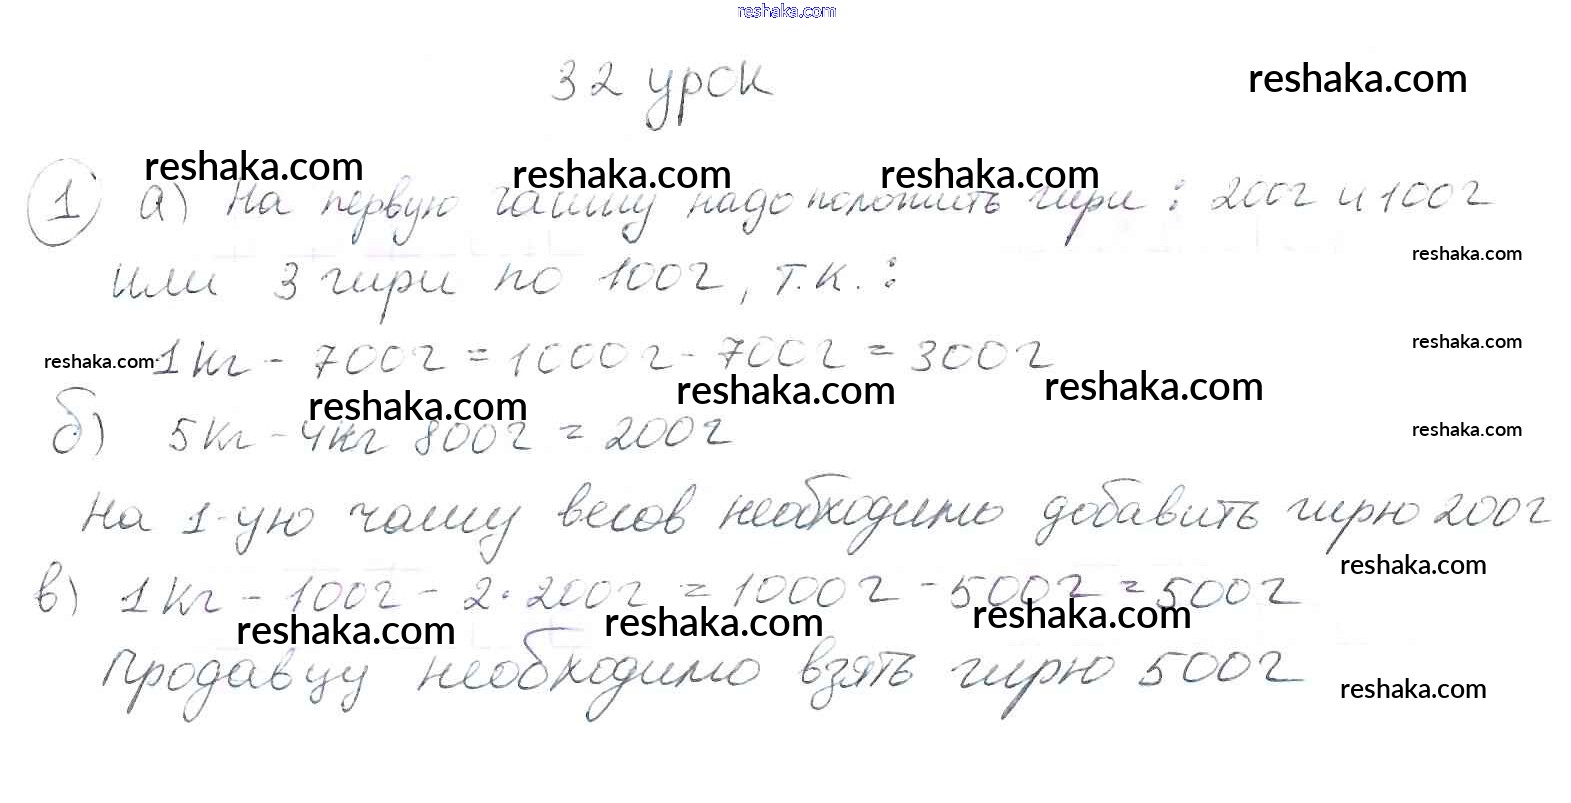 reshaka.com
32 урок
reshaka.com
reshaka.com reshaka.com reshaka.com
1 а) На первую чашу надо положить гири : 200г и 100г
reshaka.com
или 3 гири по 100г, т.к. :
reshaka.com
reshaka.com 1кг - 700г = 1000г - 700г = 300г
reshaka.com reshaka.com reshaka.com
б) 5кг - 4кг 800г = 200г
reshaka.com
На 1-ую чашу весов необходимо добавить гирю 200г
reshaka.com
в) 1кг - 100г - 2·200г = 1000г - 500г = 500г
reshaka.com reshaka.com reshaka.com
Продавцу необходимо взять гирю 500г
reshaka.com